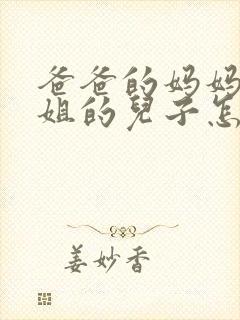 爸爸的妈妈
姐的兒子怎
姜妙香